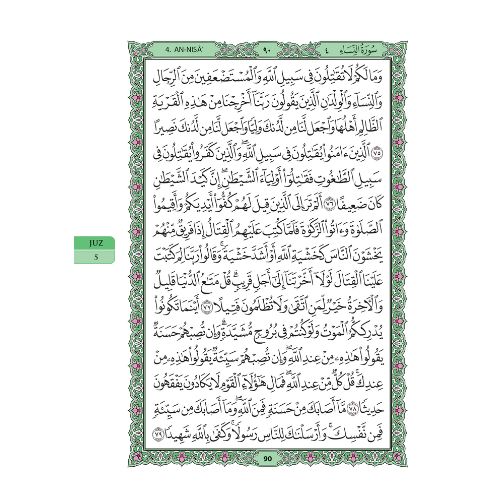 4. AN-NISĀ'
٩٠
سُورَةُ النِّسَاءِ ٤
وَمَا لَكُمْ لَا تُقَٰتِلُونَ فِى سَبِيلِ ٱللَّهِ وَٱلْمُسْتَضْعَفِينَ مِنَ ٱلرِّجَالِ
وَٱلنِّسَآءِ وَٱلْوِلْدَٰنِ ٱلَّذِينَ يَقُولُونَ رَبَّنَآ أَخْرِجْنَا مِنْ هَٰذِهِ ٱلْقَرْيَةِ
ٱلظَّالِمِ أَهْلُهَا وَٱجْعَل لَّنَا مِن لَّدُنكَ وَلِيًّا وَٱجْعَل لَّنَا مِن لَّدُنكَ نَصِيرًا
٧٥ ٱلَّذِينَ ءَامَنُوا۟ يُقَٰتِلُونَ فِى سَبِيلِ ٱللَّهِ ۖ وَٱلَّذِينَ كَفَرُوا۟ يُقَٰتِلُونَ فِى
سَبِيلِ ٱلطَّٰغُوتِ فَقَٰتِلُوٓا۟ أَوْلِيَآءَ ٱلشَّيْطَٰنِ ۖ إِنَّ كَيْدَ ٱلشَّيْطَٰنِ
كَانَ ضَعِيفًا ٧٦ أَلَمْ تَرَ إِلَى ٱلَّذِينَ قِيلَ لَهُمْ كُفُّوٓا۟ أَيْدِيَكُمْ وَأَقِيمُوا۟
ٱلصَّلَوٰةَ وَءَاتُوا۟ ٱلزَّكَوٰةَ فَلَمَّا كُتِبَ عَلَيْهِمُ ٱلْقِتَالُ إِذَا فَرِيقٌ مِّنْهُمْ
يَخْشَوْنَ ٱلنَّاسَ كَخَشْيَةِ ٱللَّهِ أَوْ أَشَدَّ خَشْيَةً ۚ وَقَالُوا۟ رَبَّنَا لِمَ كَتَبْتَ
عَلَيْنَا ٱلْقِتَالَ لَوْلَآ أَخَّرْتَنَآ إِلَىٰٓ أَجَلٍ قَرِيبٍ ۗ قُلْ مَتَٰعُ ٱلدُّنْيَا قَلِيلٌ
وَٱلْءَاخِرَةُ خَيْرٌ لِّمَنِ ٱتَّقَىٰ وَلَا تُظْلَمُونَ فَتِيلًا ٧٧ أَيْنَمَا تَكُونُوا۟
يُدْرِككُّمُ ٱلْمَوْتُ وَلَوْ كُنتُمْ فِى بُرُوجٍ مُّشَيَّدَةٍ ۗ وَإِن تُصِبْهُمْ حَسَنَةٌ
يَقُولُوا۟ هَٰذِهِۦ مِنْ عِندِ ٱللَّهِ ۖ وَإِن تُصِبْهُمْ سَيِّئَةٌ يَقُولُوا۟ هَٰذِهِۦ مِنْ
عِندِكَ ۚ قُلْ كُلٌّ مِّنْ عِندِ ٱللَّهِ ۖ فَمَالِ هَٰٓؤُلَآءِ ٱلْقَوْمِ لَا يَكَادُونَ يَفْقَهُونَ
حَدِيثًا ٧٨ مَّآ أَصَابَكَ مِنْ حَسَنَةٍ فَمِنَ ٱللَّهِ ۖ وَمَآ أَصَابَكَ مِن سَيِّئَةٍ
فَمِن نَّفْسِكَ ۚ وَأَرْسَلْنَٰكَ لِلنَّاسِ رَسُولًا ۚ وَكَفَىٰ بِٱللَّهِ شَهِيدًا ٧٩
JUZ
5
90